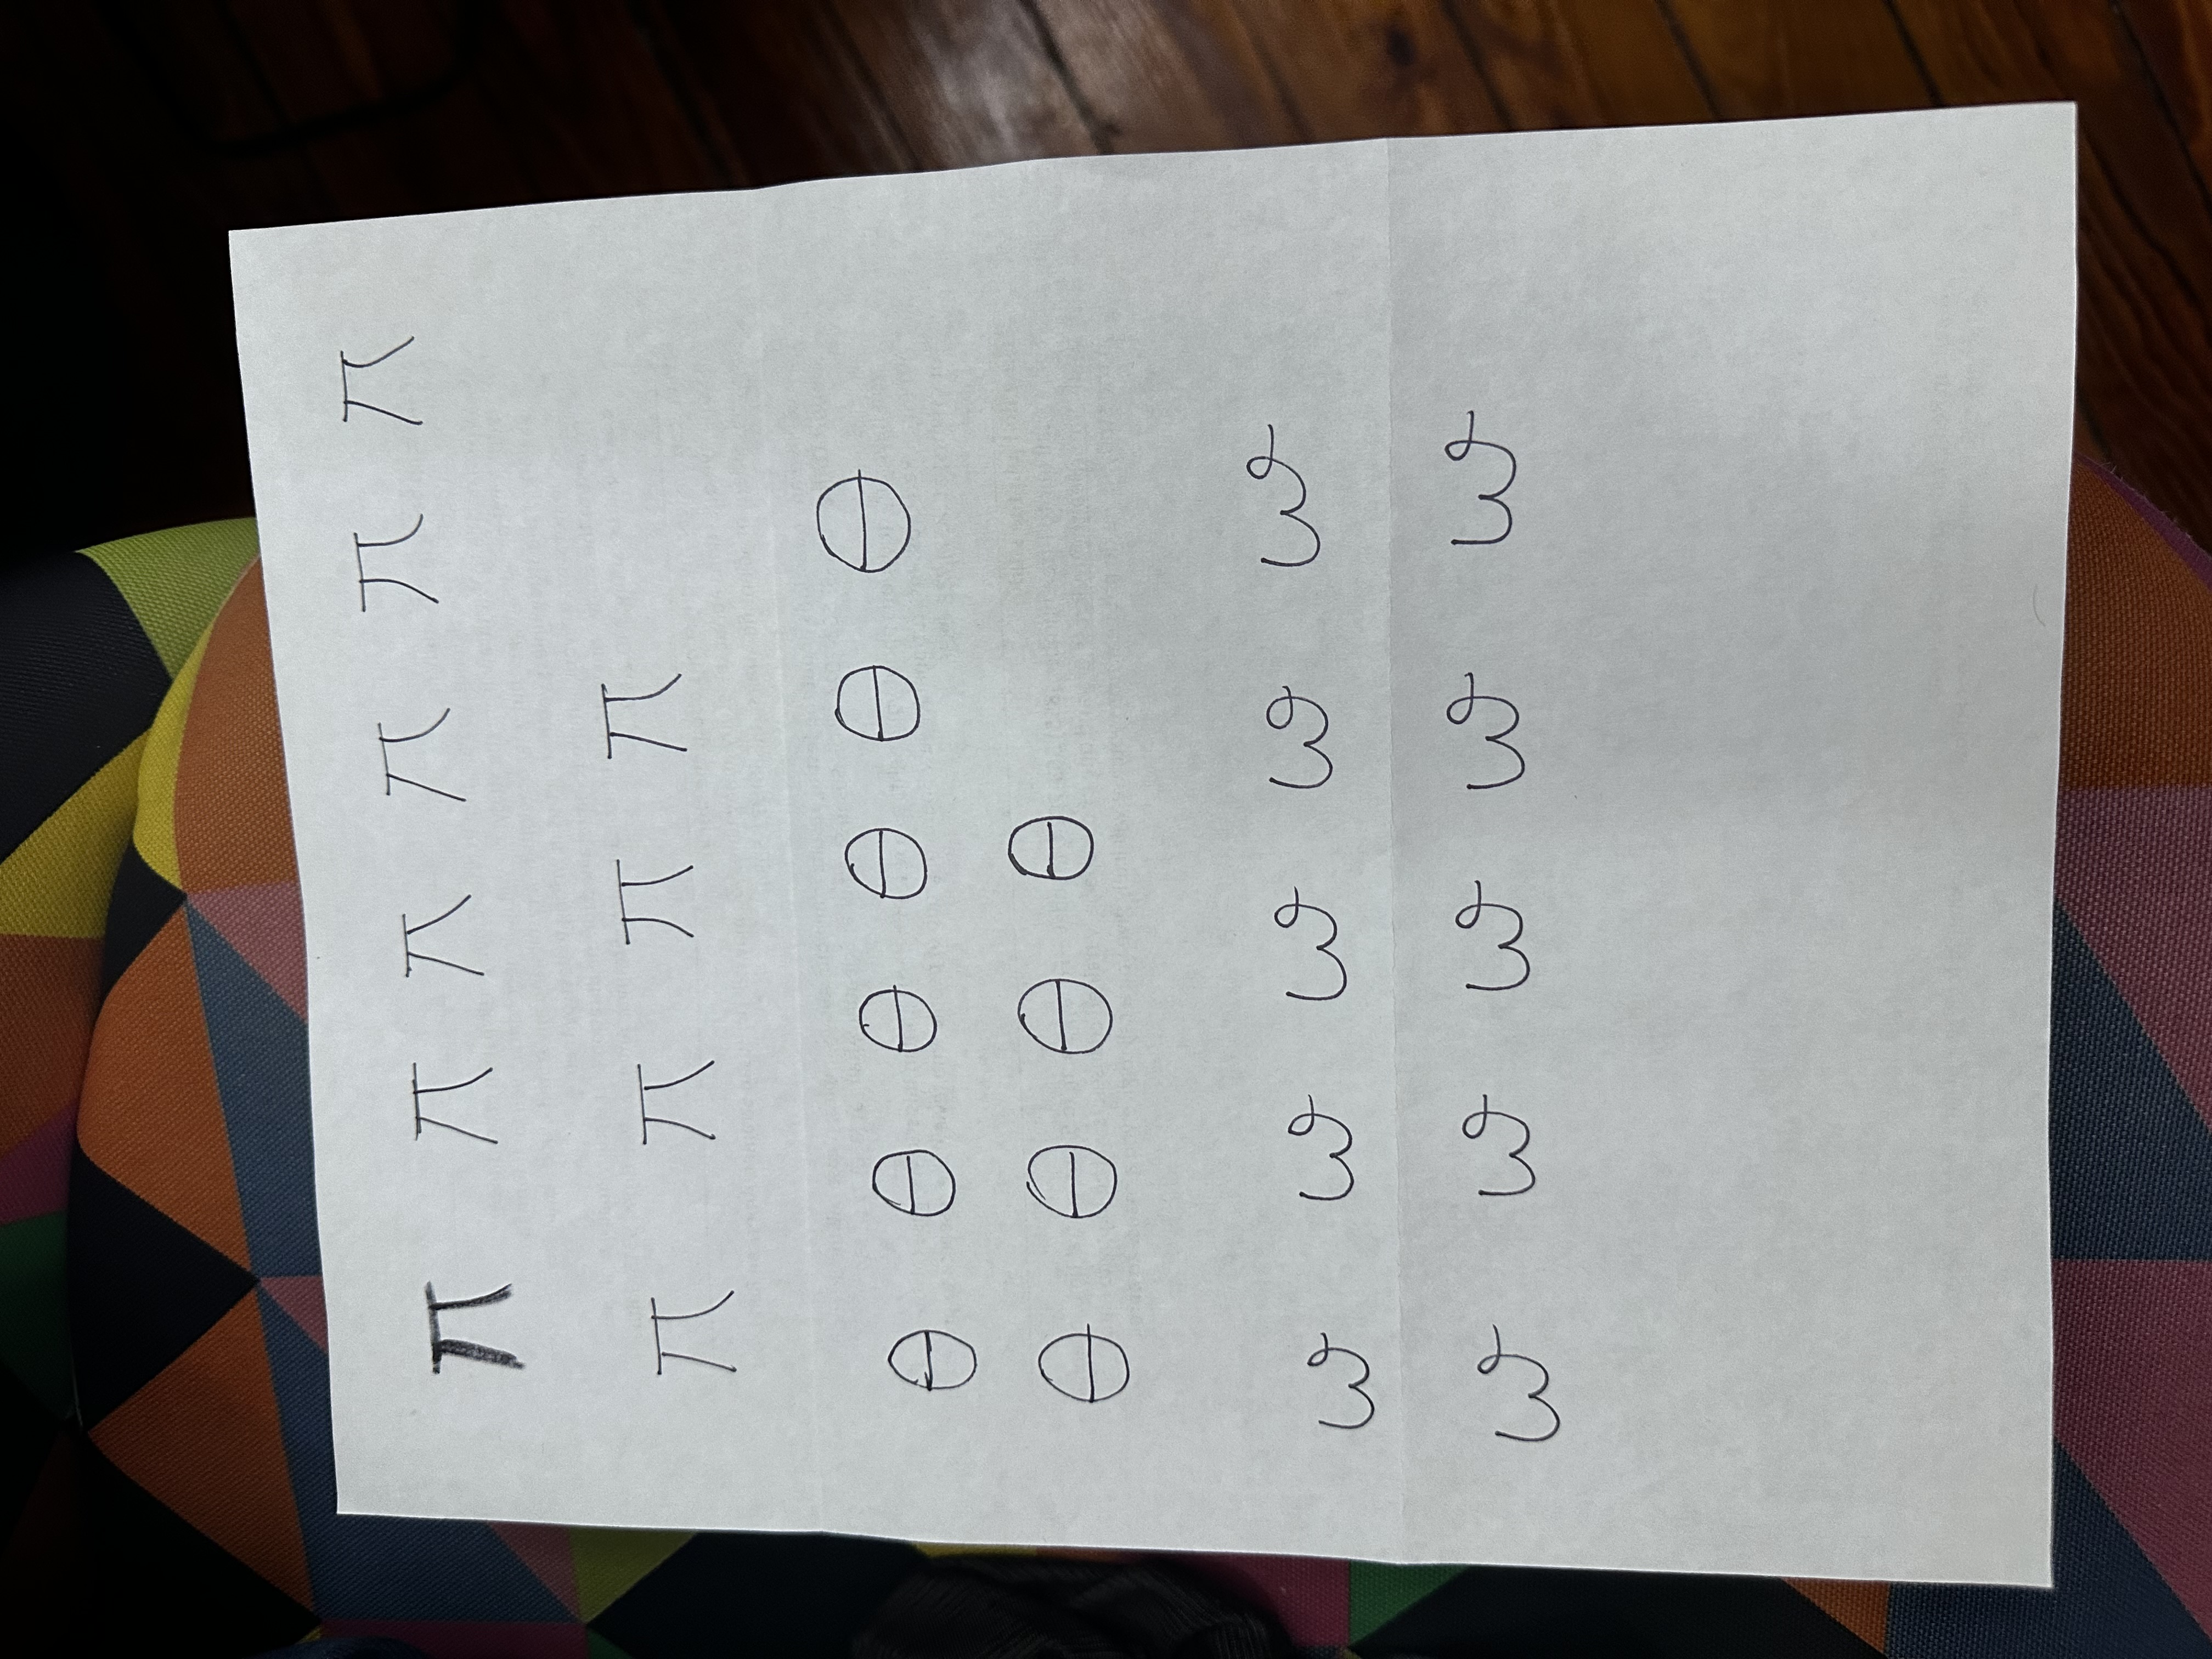 π π π π π π
π π π π
θ θ θ θ θ θ
θ θ θ θ
ω ω ω ω ω
ω ω ω ω ω